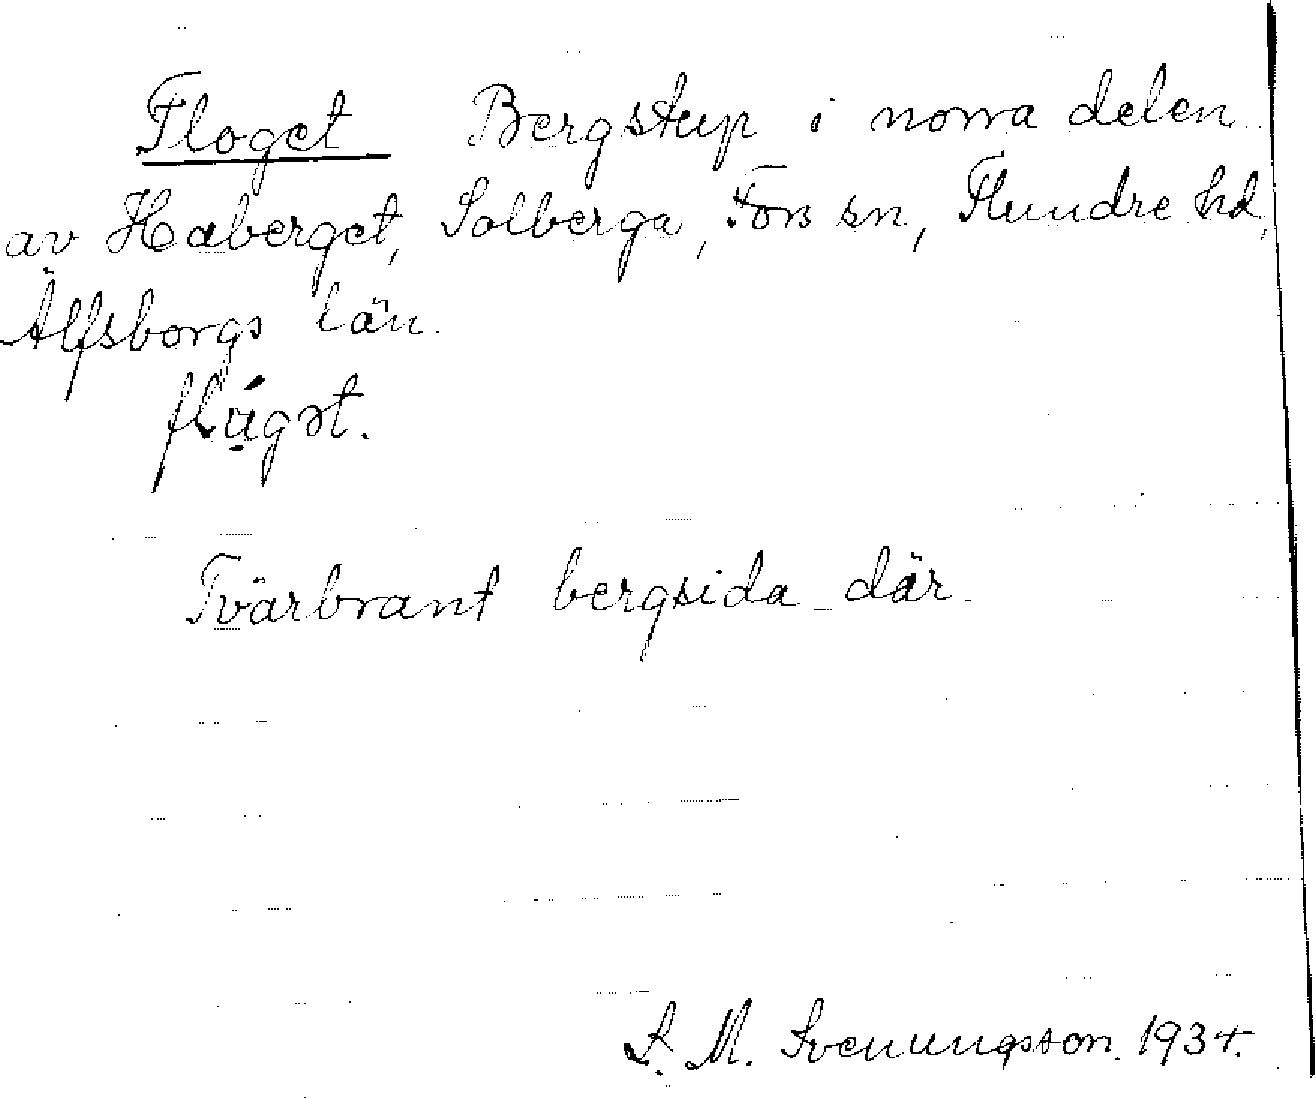 Floget Bergstup i norra delen
av Haberget, Solberga, Fors sn, Flundre hd,
Älfsborgs län.
flụ̇gət.
Tvärbrant bergsida där
S. M. Svenungsson. 1934.